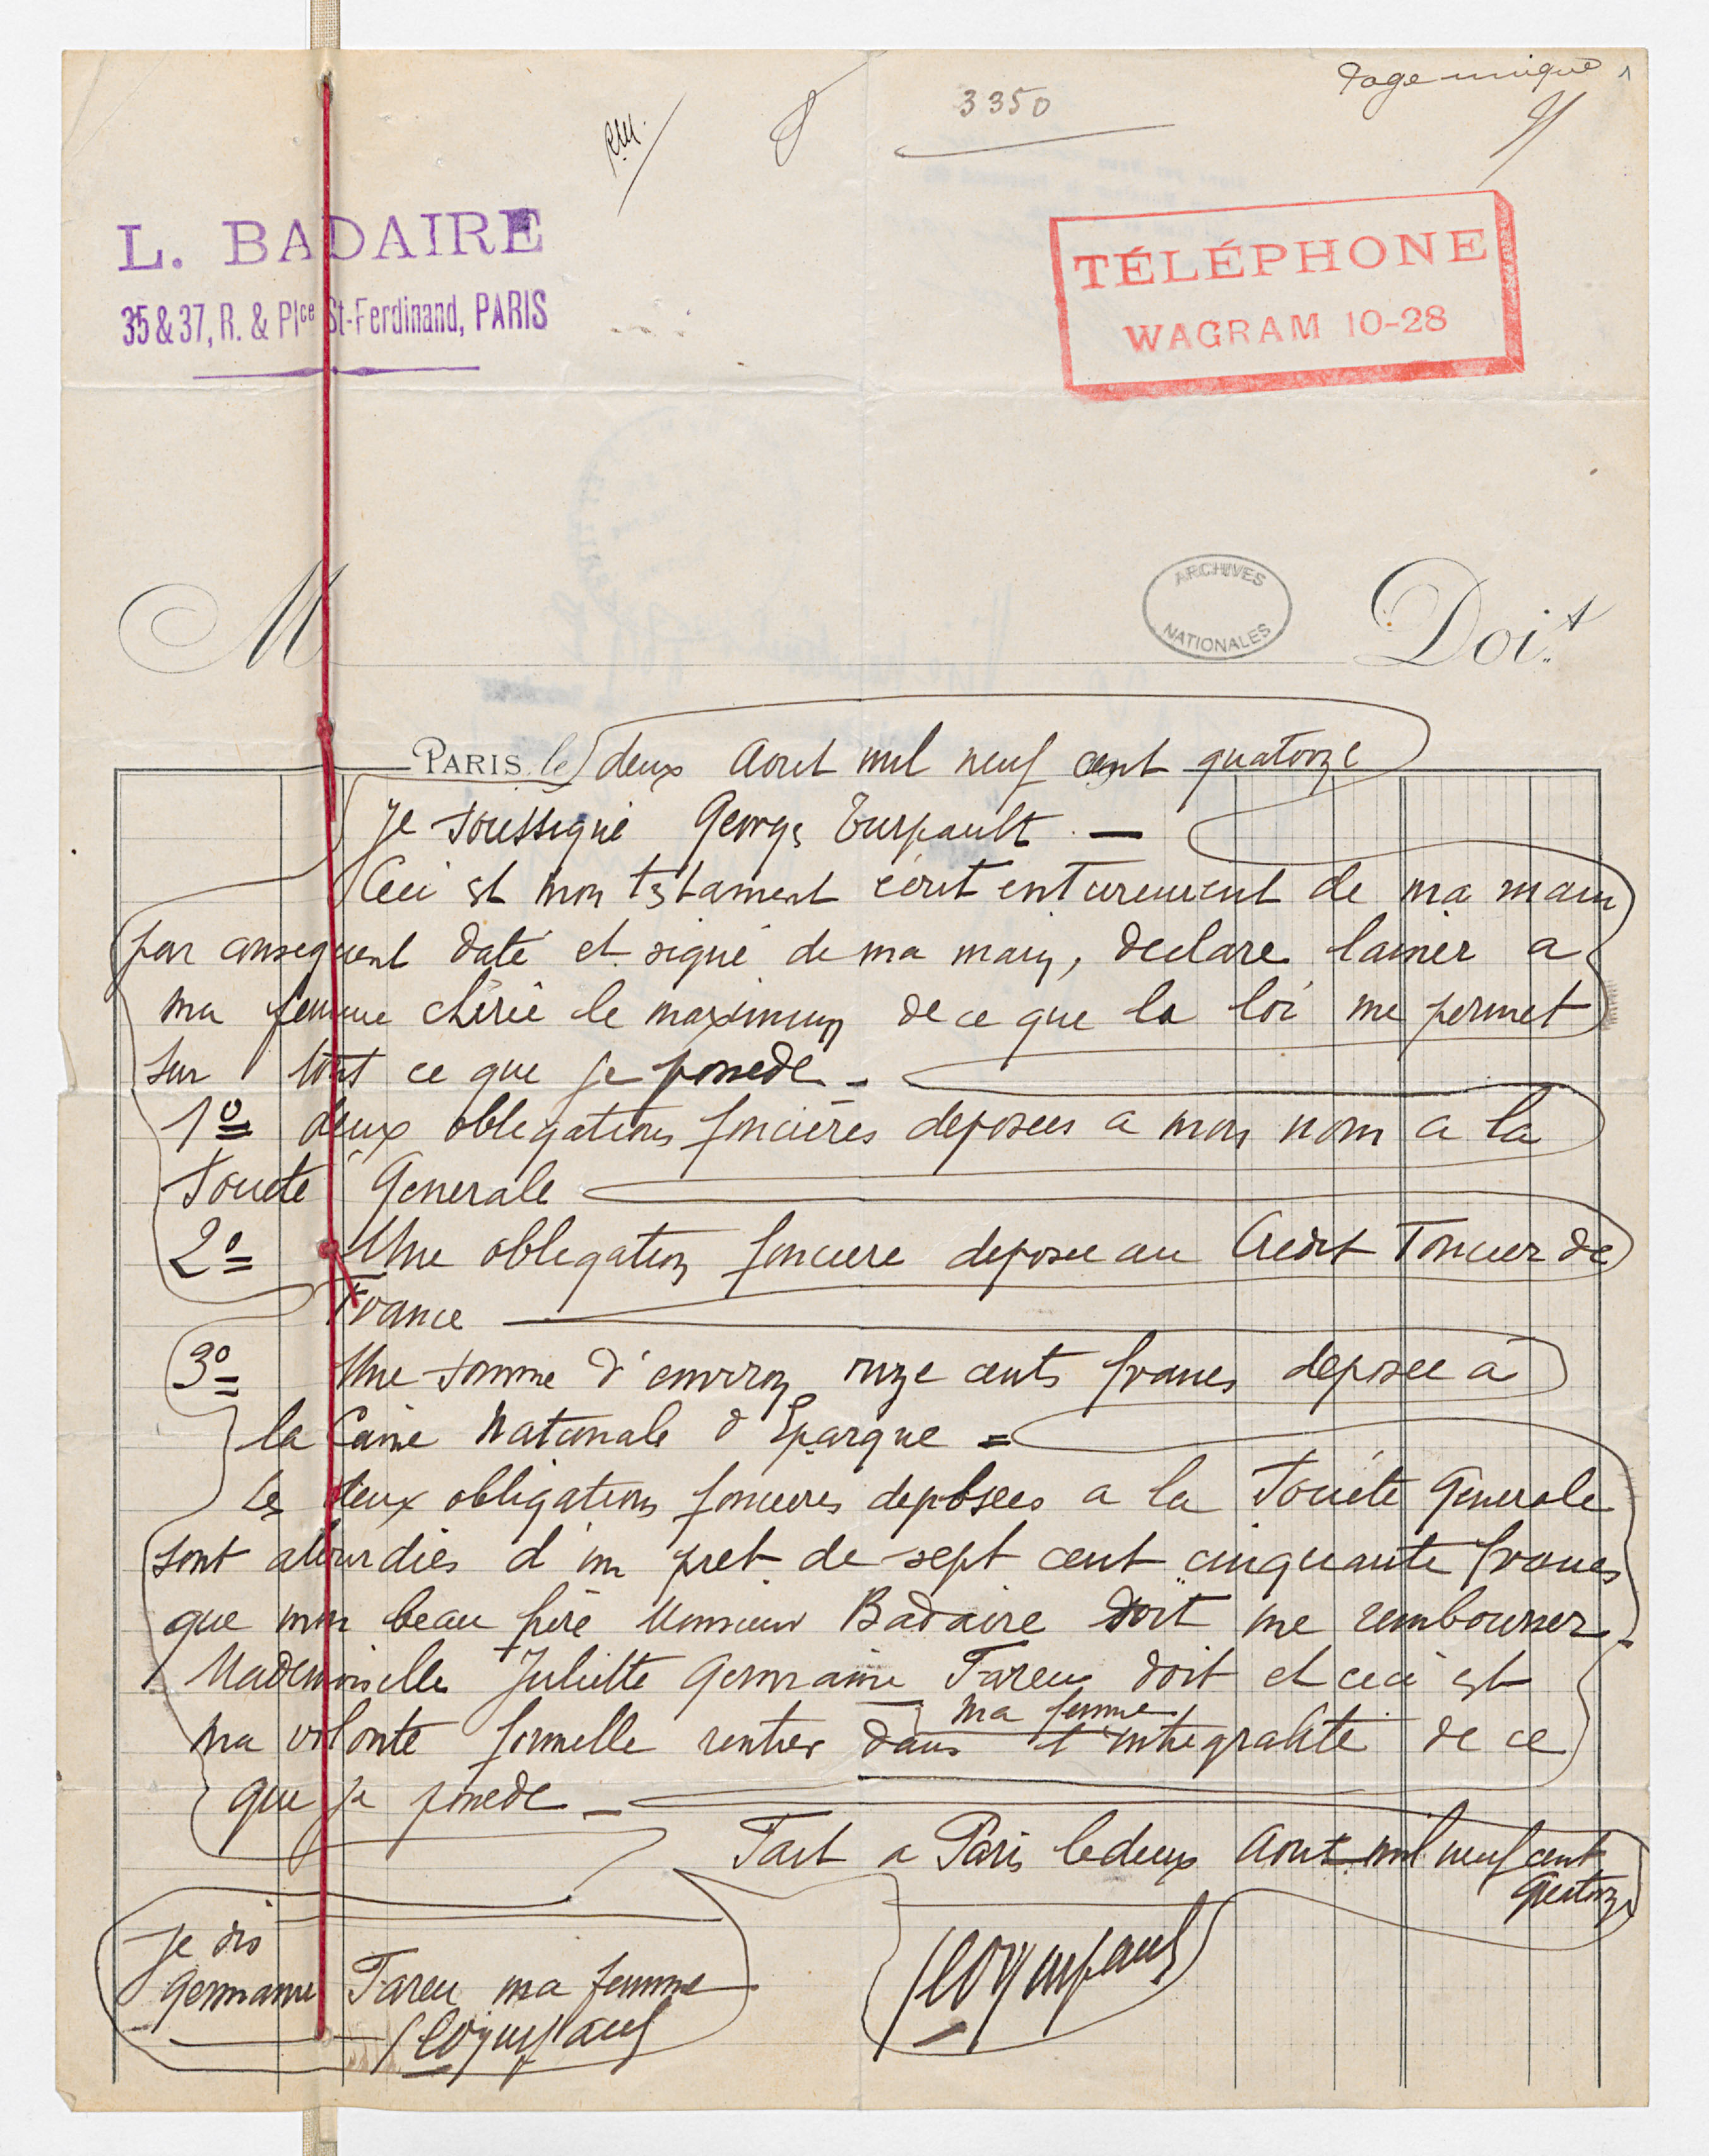 Page unique 1
3350
L. BADAIRE
35 & 37, R. & Plce St-Ferdinand, PARIS
TÉLÉPHONE
WAGRAM 10-28
ARCHIVES
NATIONALES
M Doit
PARIS, le deux Aout mil neuf cent quatorze
Je soussigné Georges Turpault. —
Ceci est mon testament écrit entierement de ma main
par consequent daté et signé de ma main, declare laisser a
ma femme chérie le maximum de ce que la loi me permet
sur tout ce que je possede -
1º deux obligations foncières deposees a mon nom a la
Societe Generale
2º Une obligation fonciere deposee au Credit Foncier de
France
3º Une somme d'environ onze cents francs deposee a
la Caisse Nationale d'Epargne =
Les deux obligations foncieres deposees a la Société Generale
sont alourdies d'un pret de sept cent cinquante francs
que mon beau père Monsieur Badaire doit me rembourser.
Mademoiselle Juliette Germaine Fareu doit et ceci est
ma femme
ma volonte formelle rentrer dans l'intégralité de ce
que je possede -
Fait a Paris le deux Aout mil neuf cent
quatorze
Je dis
Germaine Fareu ma femme